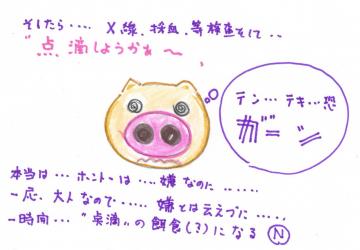 そしたら‥‥ X線、採血、等検査そして‥
"点滴しようかぁ〜"
テン…テキ…恐
ガ"ーン
本当は…ホントーは‥‥嫌なのに‥‥‥
一応、大人なので‥‥嫌とは云えづに‥‥、
一時間…"点滴"の餌食(?)になる N